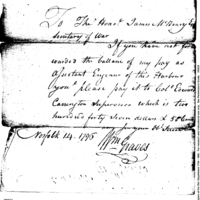 To The Honble James McHenry
Secretary of War
If you have not for
warded the ballane of my pay as
Assistant Engineer of this Harbour
you please pay it to Colo. Edward
Carrington Supervisor which is two
hundred forty seven dollars &
your
Norfolk 14. 1796
Wm Graves